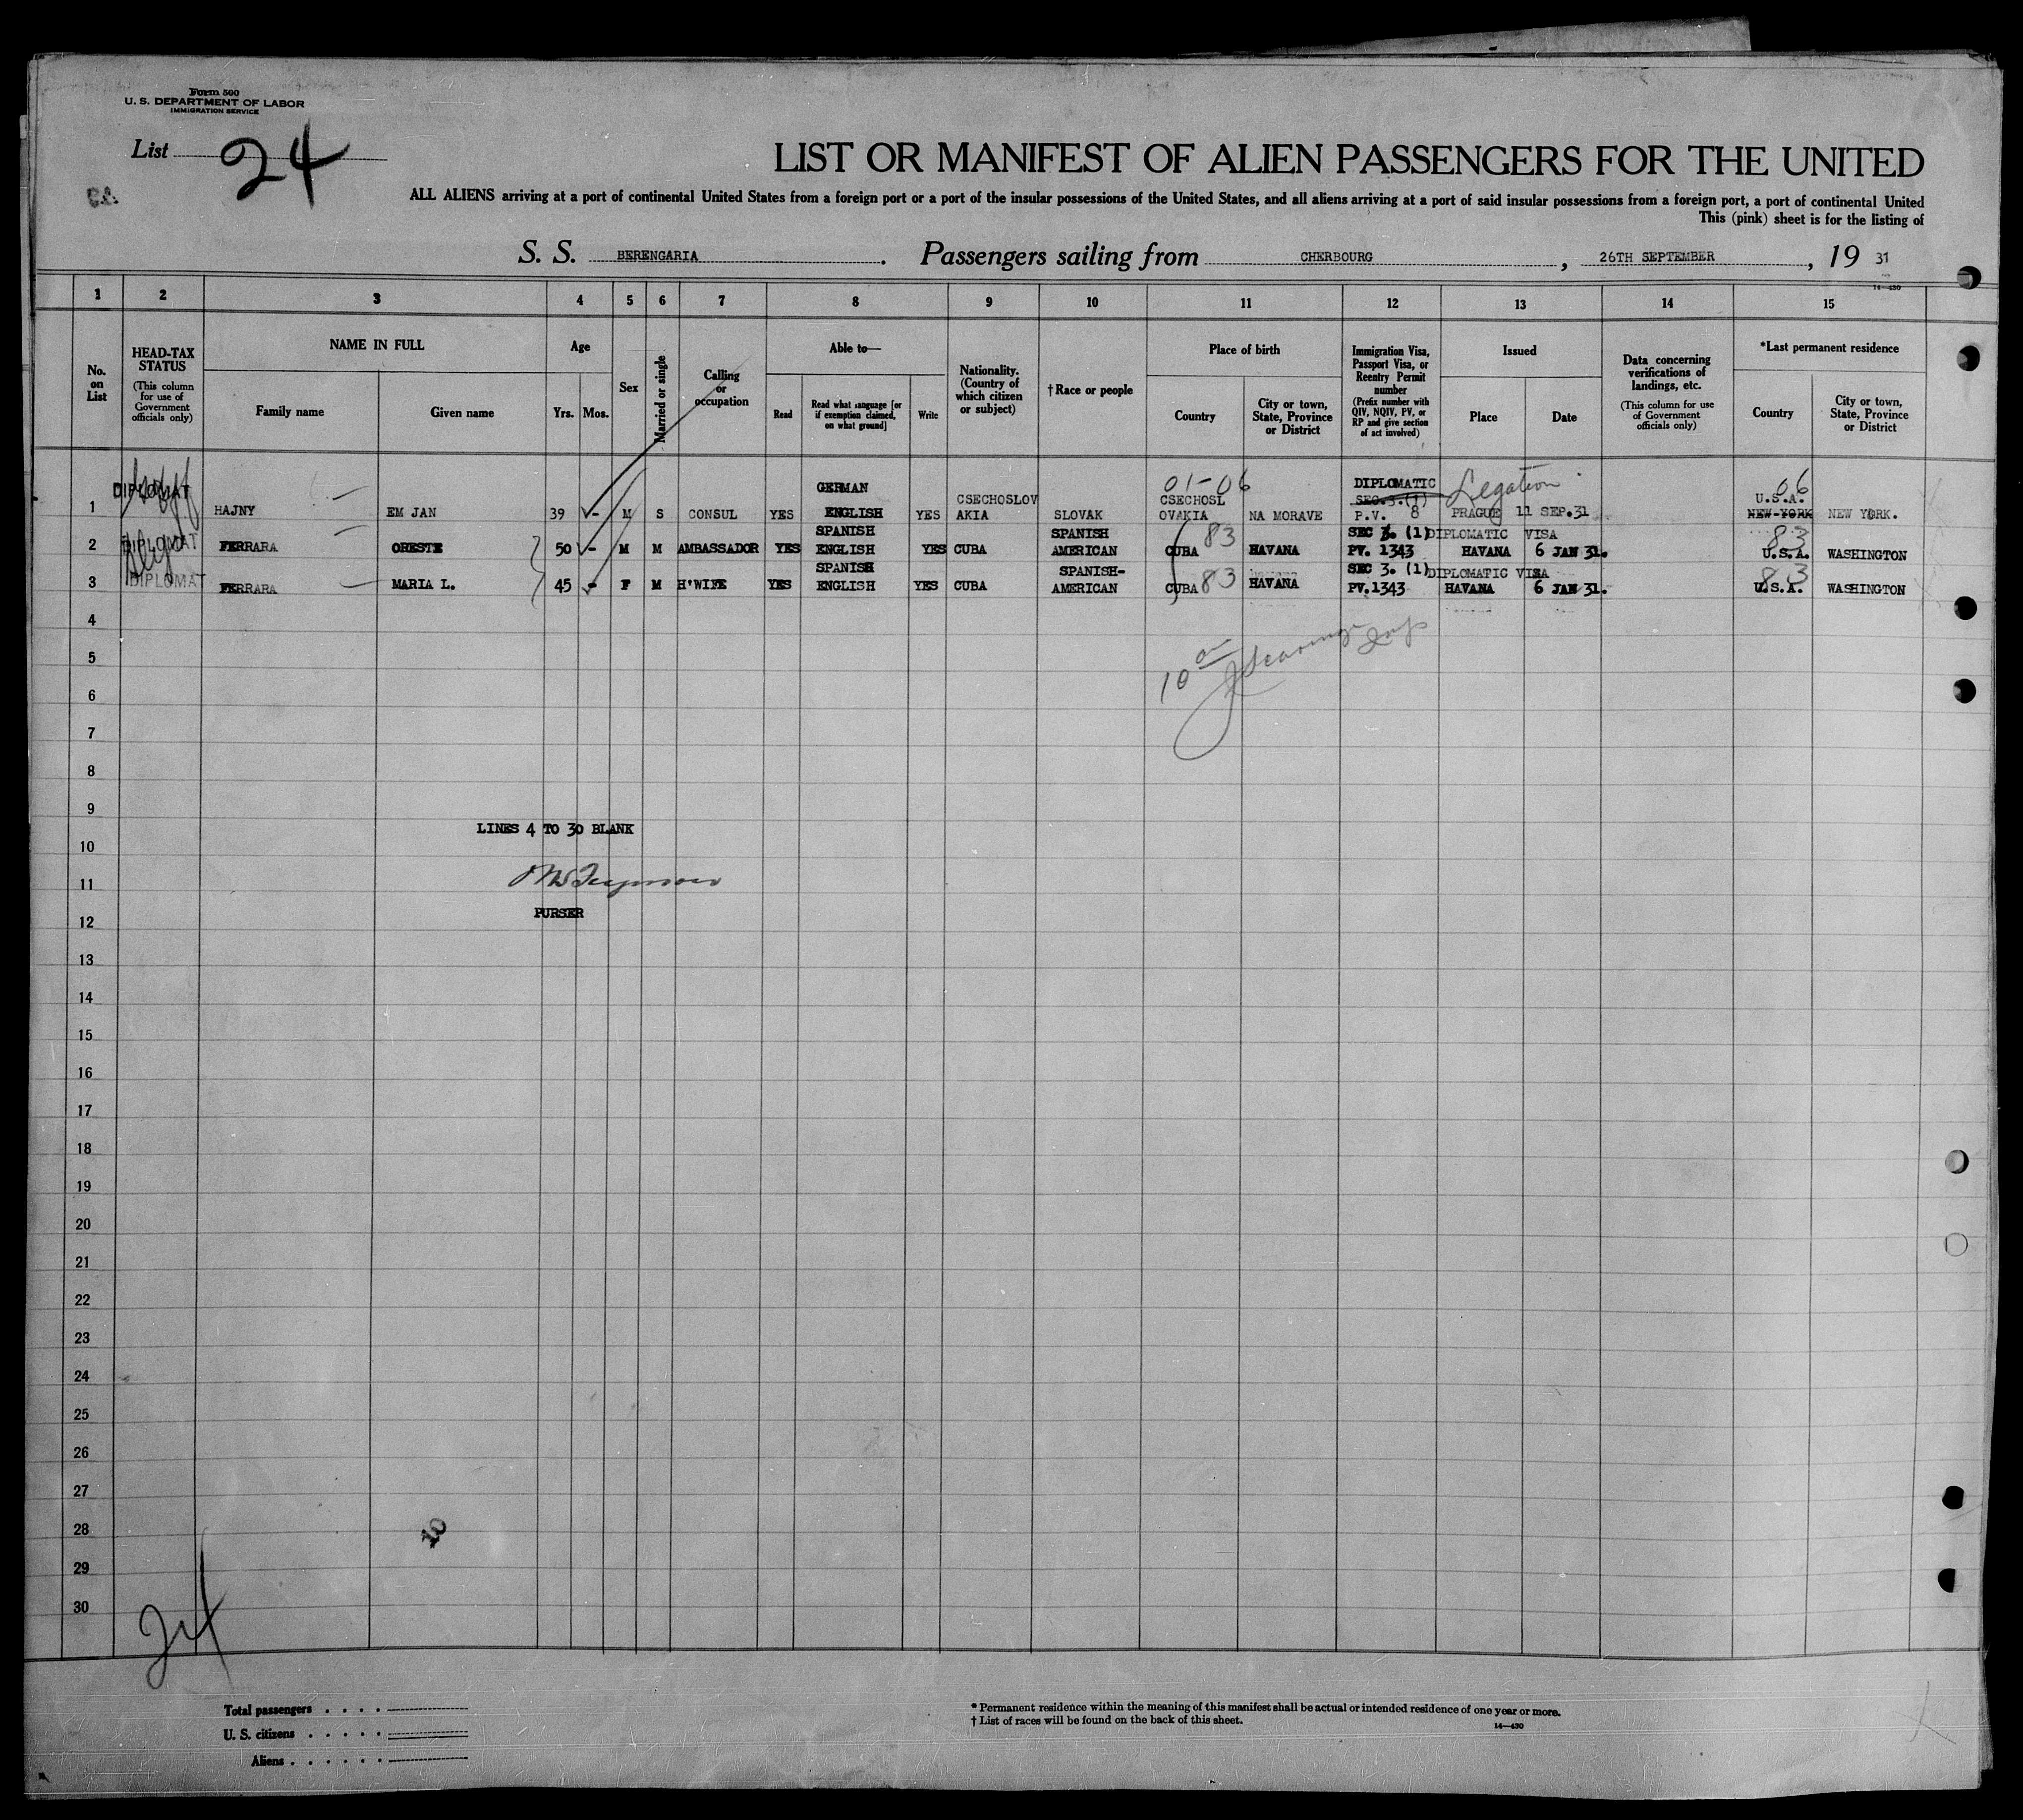 Form 500
U. S. DEPARTMENT OF LABOR
IMMIGRATION SERVICE
List 24
LIST OR MANIFEST OF ALIEN PASSENGERS FOR THE UNITED
ALL ALIENS arriving at a port of continental United States from a foreign port or a port of the insular possessions of the United States, and all aliens arriving at a port of said insular possessions from a foreign port, a port of continental United
This (pink) sheet is for the listing of
S. S. BERENGARIA. Passengers sailing from CHERBOURG, 26TH SEPTEMBER, 19 31
14—430
1 2 3 4 5 6 7 8 9 10 11 12 13 14 15
No. on List
HEAD-TAX STATUS (This column for use of Government officials only)
NAME IN FULL
Family name
Given name
Age
Yrs. Mos.
Sex
Married or single
Calling or occupation
Able to—
Read
Read what language [or if exemption claimed, on what ground]
Write
Nationality. (Country of which citizen or subject)
† Race or people
Place of birth
Country
City or town, State, Province or District
Immigration Visa, Passport Visa, or Reentry Permit number (Prefix number with QIV, NQIV, PV, or RP and give section of act involved)
Issued
Place
Date
Data concerning verifications of landings, etc. (This column for use of Government officials only)
*Last permanent residence
Country
City or town, State, Province or District
01-06 06
DIPLOMAT GERMAN CSECHOSLOV CSECHOSL DIPLOMATIC SEC.3.(1) Legation U.S.A.
1 HAJNY EM JAN 39 - M S CONSUL YES ENGLISH YES AKIA SLOVAK OVAKIA NA MORAVE P.V. 8 PRAGUE 11 SEP.31 NEW-YORK NEW YORK.
DIPLOMAT SPANISH SPANISH 83 SEC 3. (1) DIPLOMATIC VISA 83
2 FERRARA ORESTE 50 - M M AMBASSADOR YES ENGLISH YES CUBA AMERICAN CUBA HAVANA PV. 1343 HAVANA 6 JAN 31. U.S.A. WASHINGTON
DIPLOMAT SPANISH SPANISH- 83 SEC 3. (1) DIPLOMATIC VISA 83
3 FERRARA MARIA L. 45 - F M H'WIFE YES ENGLISH YES CUBA AMERICAN CUBA HAVANA PV.1343 HAVANA 6 JAN 31. U.S.A. WASHINGTON
4
5
6
7
8
9
LINES 4 TO 30 BLANK
10
11
PURSER
12
13
14
15
16
17
18
19
20
21
22
23
24
25
26
27
28
29
30
24
Total passengers
U. S. citizens
Aliens
* Permanent residence within the meaning of this manifest shall be actual or intended residence of one year or more.
† List of races will be found on the back of this sheet.
14—430